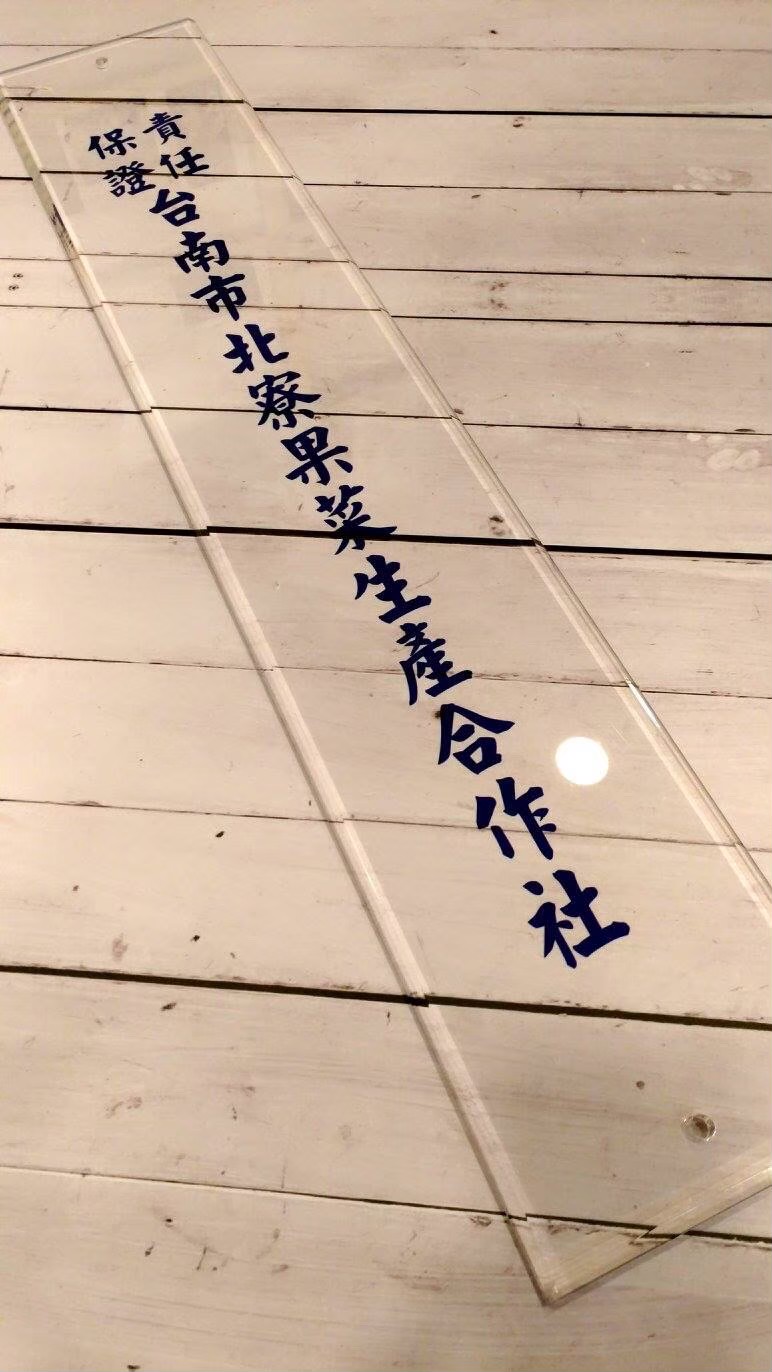 保證責任
台南市北寮果菜生產合作社